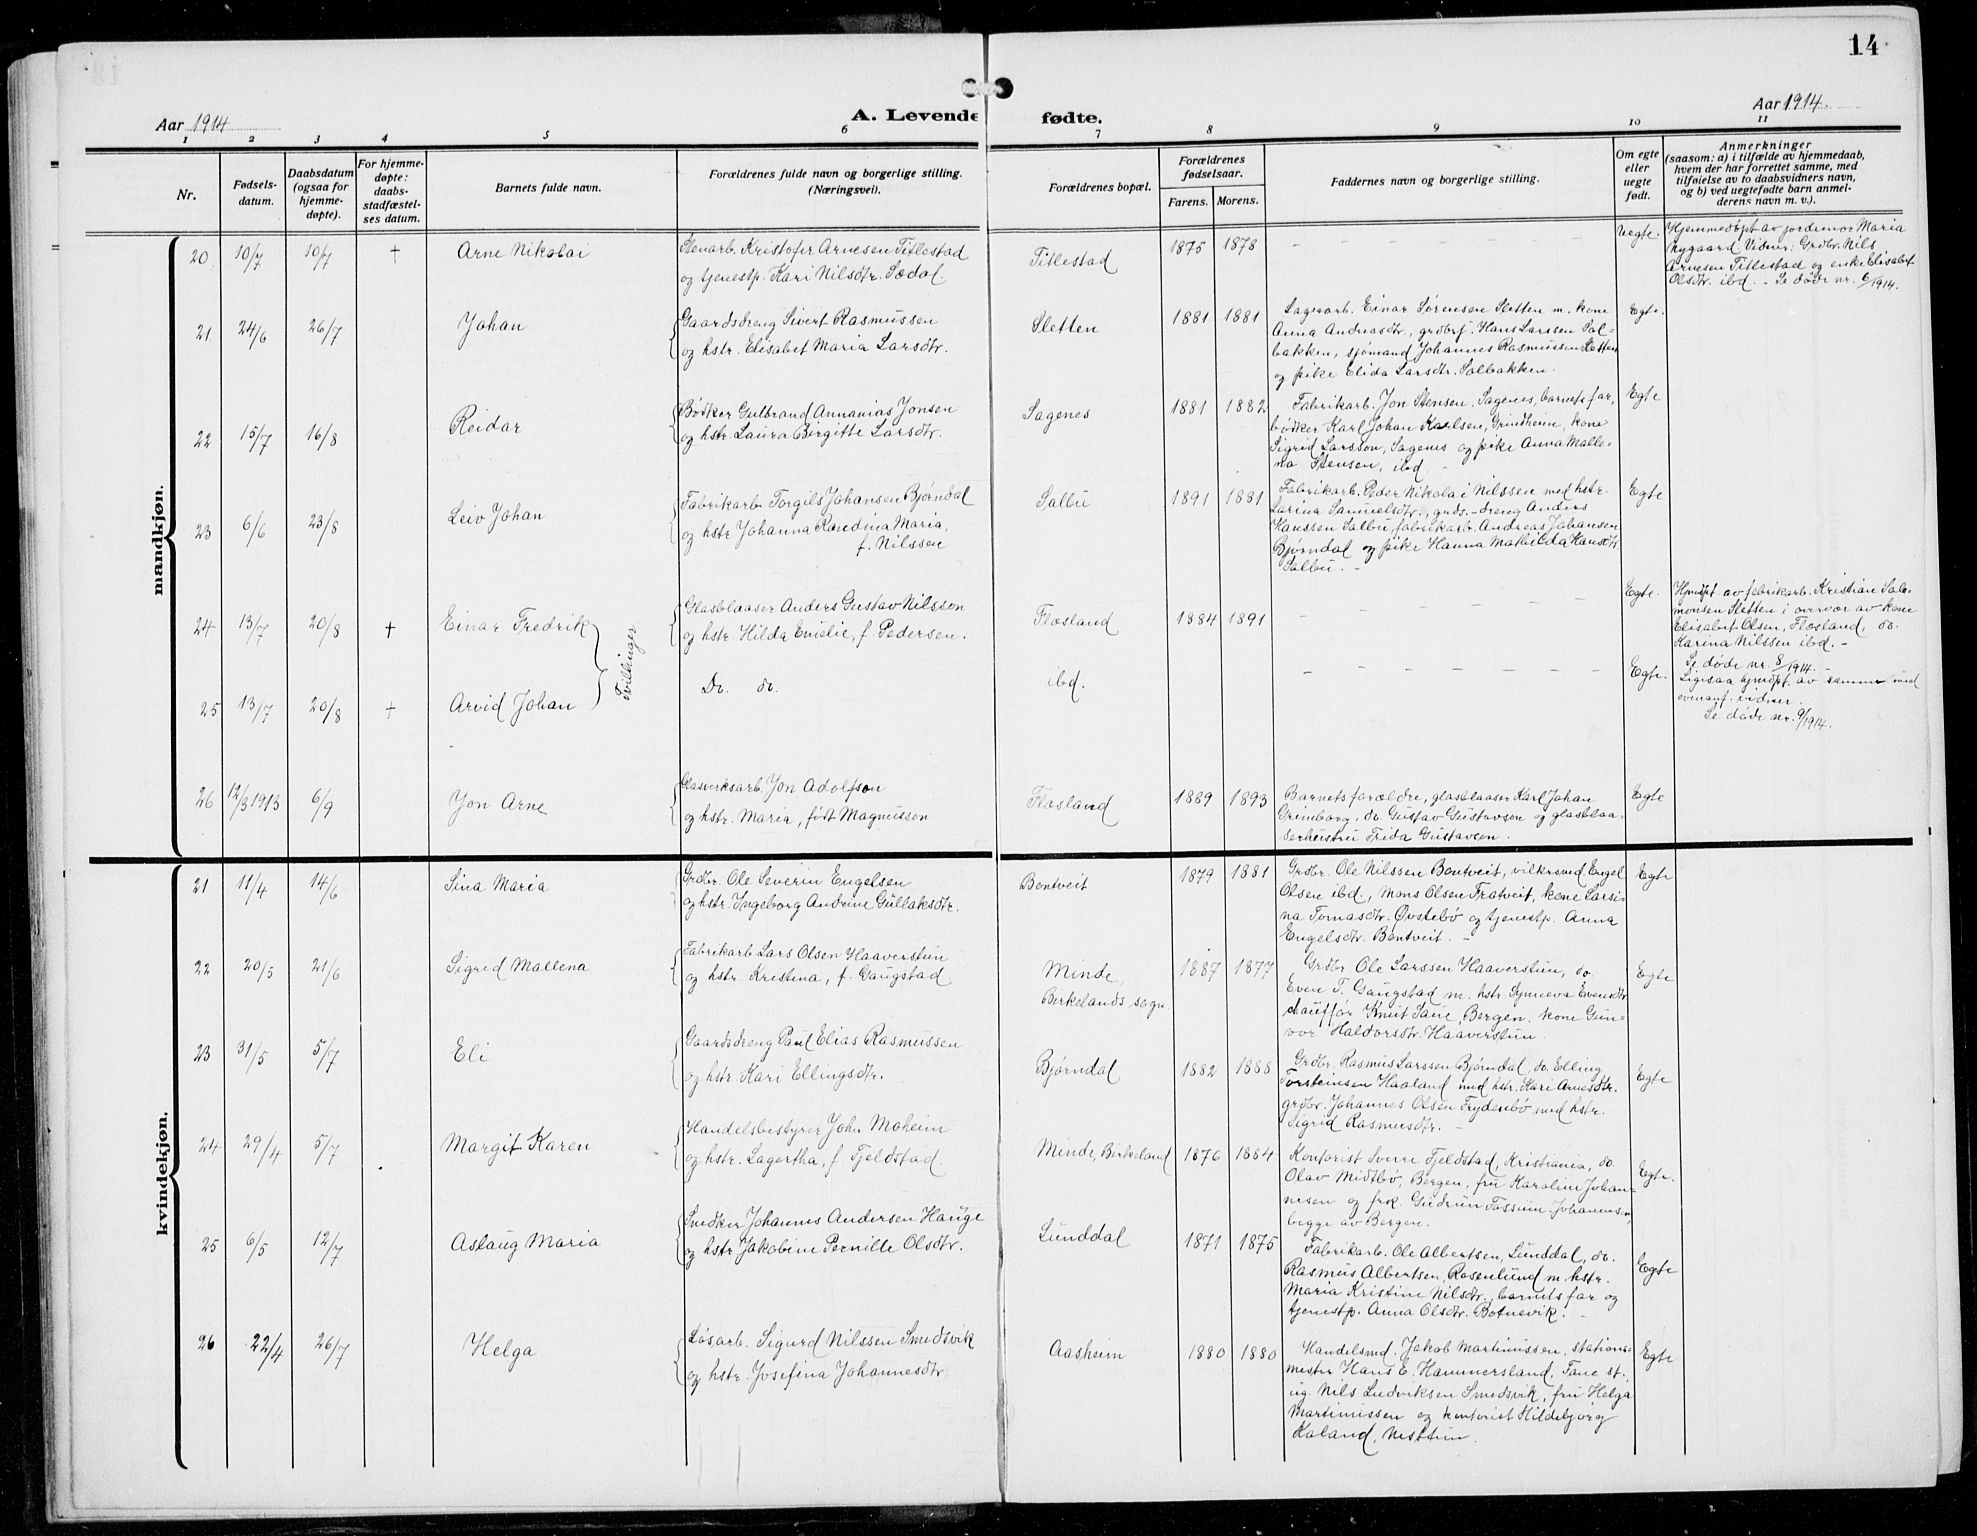 14
Aar 1914
A. Levende fødte.
Aar 1914.
1 2 3 4 5 6 7 8 9 10 11
Nr.
Fødselsdatum.
Daabsdatum (ogsaa for hjemmedøpte).
For hjemmedøpte: daabsstadfæstelses datum.
Barnets fulde navn.
Forældrenes fulde navn og borgerlige stilling. (Næringsvei).
Forældrenes bopæl.
Forældrenes fødselsaar.
Farens. Morens.
Faddernes navn og borgerlige stilling.
Om egte eller uegte født.
Anmerkninger
(saasom: a) i tilfælde av hjemmedaab,
hvem der har forrettet samme, med
tilføielse av to daabsvidners navn,
og b) ved uegtefødte barn anmelderens navn m. v.).
mandkjøn.
20 10/7 10/7 † Arne Nikolai
Stenarb. Kristofer Arnesen Titlestad
og tjenestp. Kari Nilsdtr. Sædal.
Titlestad 1875 1878 – – – – – – Uegte.
Hjemmedøpt av jordemor Maria
Nygaard. Vidner: Grdbr. Nils
Arnesen Titlestad og enke Elisabet
Olsdtr. ibd. – Se døde nr. 6/1914.
21 24/6 26/7 Johan
Gaardsdreng Sivert Rasmussen
og hstr. Elisabet Maria Larsdtr.
Sletten 1881 1881
Sagarb. Einar Sørensen Sletten m. kone
Anna Andreasdtr., grdbrf. Hans Larssen Sol-
bakken, sjømand Johannes Rasmussen Sletten
og pike Elida Larsdtr. Solbakken.
Egte.
22 15/7 16/8 Reidar
Bødker Gulbrand Annanias Jonsen
og hstr. Laura Birgitte Larsdtr.
Sagenes 1881 1882
Fabrikarb. Jon Stensen, Sagenes, barnets far,
bødker Karl Johan Karlsen, Grindheim, kone
Sigrid Larsson, Sagenes og pike Anna Malle-
na Stensen, ibd. –
Egte
23 6/6 23/8 Leiv Johan
Fabrikarb. Torgils Johansen Bjørndal
og hstr. Johanna Randina Maria,
f. Nilssen
Salbu 1891 1881
Fabrikarb. Peder Nikolai Nilssen med hstr.
Larina Samuelsdtr., grds.-dreng Anders
Hanssen Salbu, fabrikarb. Andreas Johansen
Bjørndal og pike Hanna Mathilda Hansdtr.
Salbu. –
Egte
24 13/7 20/8 † Einar Fredrik
Tvillinger
Glasblaaser Anders Gustav Nilsson
og hstr. Hilda Emelie, f. Pedersen.
Flæsland 1884 1891 – – – – – – Egte.
Hjmdpt. av fabrikarb. Kristian Salo-
monsen Sletten i overvær av kone
Elisabet Olsen, Flæsland, do.
Karina Nilssen ibd. –
Se døde nr. 8/1914. –
25 13/7 20/8 † Arvid Johan
Do. do.
ibd. – – – – – – Egte.
Ligesaa hjmdpt. av samme med
ovenanf. vidner.
Se døde nr. 9/1914.
26 12/3 1913 6/9 Jon Arne
Glasverksarb. Jon Adolfson
og hstr. Maria, født Magnusson
Flæsland 1889 1893
Barnets forældre, glasblaaser Karl Johan
Grimborg, do. Gustav Gustavson og glasblaa-
serhustru Frida Gustavson.
Egte
kvindekjøn.
21 11/4 14/6 Sina Maria
Grdbr. Ole Severin Engelsen
og hstr. Ingeborg Andrine Gullaksdtr.
Bontveit 1879 1881
Grdbr. Ole Nilssen Bontveit, vilkrsmd. Engel
Olsen ibd., Mons Olsen Tratveit, kone Larsi-
na Tomasdtr. Øvstebø og tjenestp. Anna
Engelsdtr. Bontveit. –
Egte
22 20/5 21/6 Sigrid Mallena
Fabrikarb. Lars Olsen Haaverstun
og hstr. Kristina, f. Gaugstad
Minde,
Birkelands sogn. 1887 1877
Grdbr. Ole Larssen Haaverstun, do.
Even T. Gaugstad m. hstr. Synneva Evensdtr.
chauffør Knut Saue, Bergen, kone Gun-
vor Haldorsdtr. Haaverstun.
Egte
23 31/5 5/7 Eli
Gaardsdreng Paul Elias Rasmussen
og hstr. Kari Ellingsdtr.
Bjørndal 1882 1888
Grdbr. Rasmus Larssen Bjørndal, do. Elling
Torsteinsen Haaland med hstr. Kari Arnesdtr.
grdbr. Johannes Olsen Frydenbø med hstr.
Sigrid Rasmusdtr. –
Egte
24 29/4 5/7 Margit Karen
Handelsbestyrer John Moheim
og hstr. Lagertha, f. Fjeldstad.
Minde, Birkeland 1876 1884
Kontorist Sverre Fjeldstad, Kristiania, do.
Olav Midtbø, Bergen, fru Karoline Johan-
nesen og frøk. Gudrun Fossum-Johannesen,
begge av Bergen.
Egte.
25 6/5 12/7 Aslaug Maria
Snedker Johannes Andersen Hauge
og hstr. Jakobine Pernille Olsdtr.
Lunddal 1871 1875
Fabrikarb. Ole Albertsen, Lunddal, do.
Rasmus Albertsen, Rosenlund m. hstr.
Maria Kristine Nilsdtr., barnets far og
tjenestp. Anna Olsdtr. Botnevik. –
Egte
26 22/4 26/7 Helga
Løsarb. Sigurd Nilssen Smedsvik
og hstr. Josefina Johannesdtr.
Aasheim 1880 1880
Handelsmd. Jakob Martinussen, stations-
mester Hans E. Hammersland, Fane st.,
ug. Nils Ludviksen Smedsvik, fru Helga
Martinussen og kontorist Hildebjørg
Kaland, Nesttun.
Egte